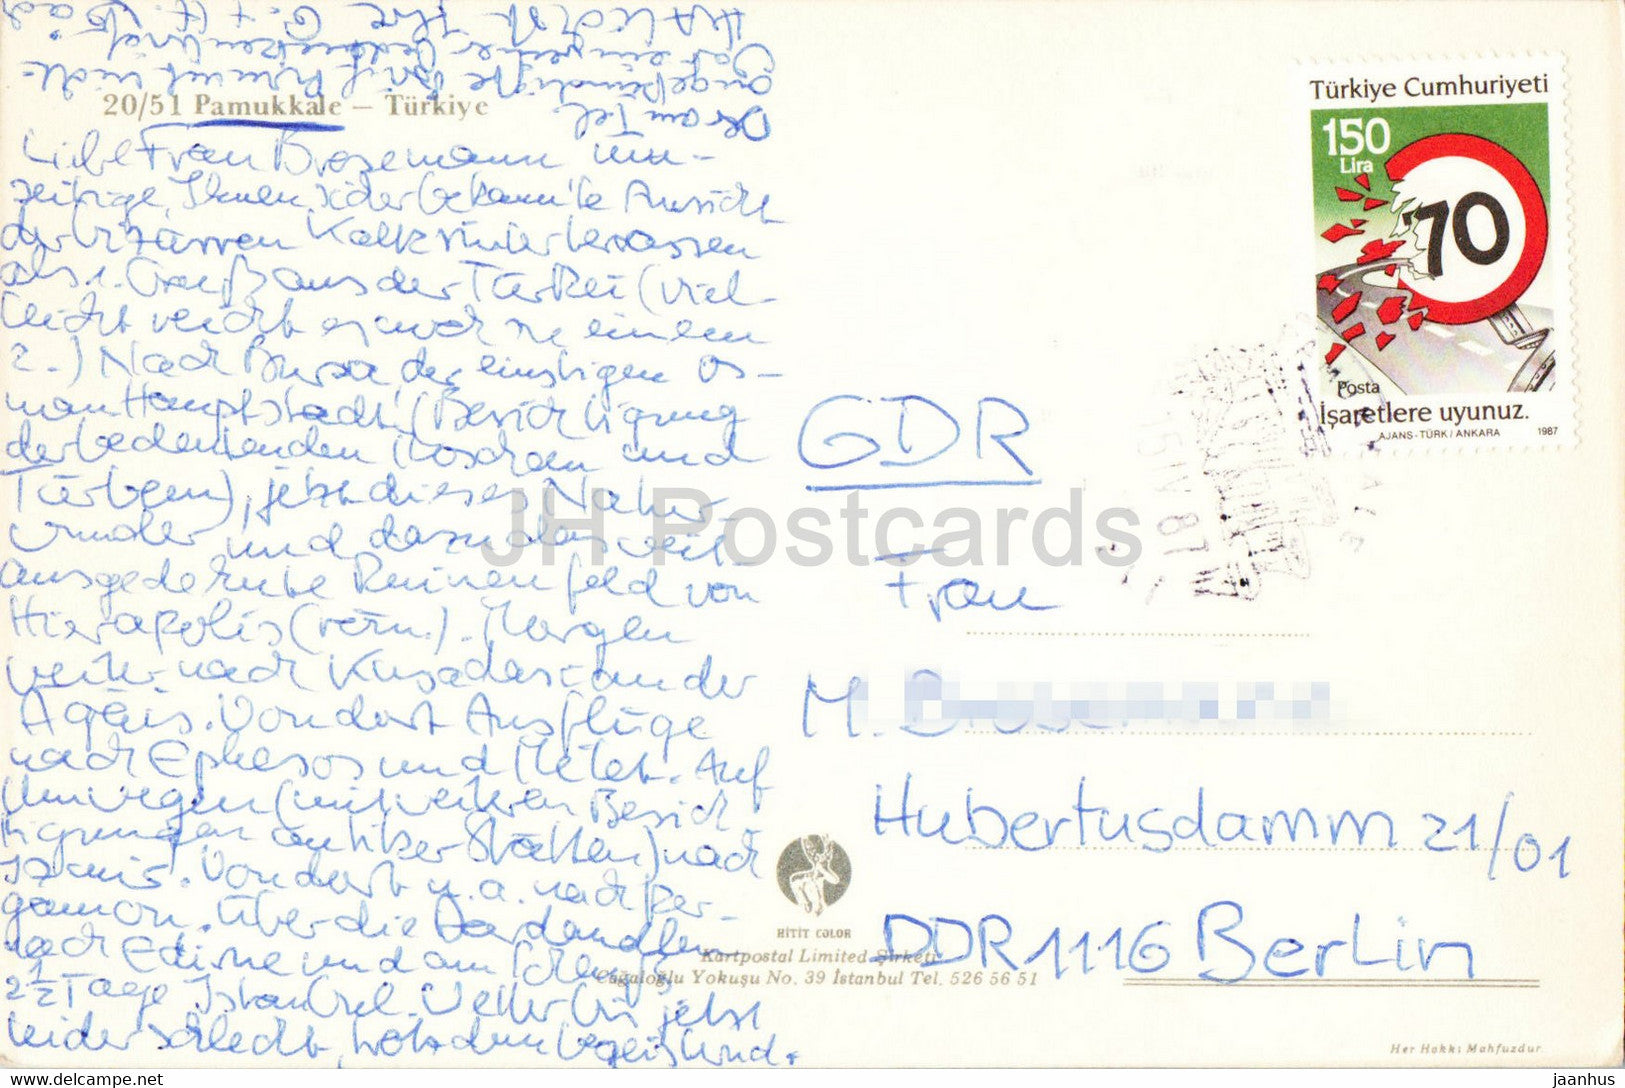 20/51 Pamukkale — Türkiye
Liebe Frau
der bekannte Ansicht
der bizarren Kalksinterterrassen
als 1. Gruß aus der Türkei (viel-
leicht reicht es noch zu einem
2.) Nach Bursa der einstigen Os-
man Hauptstadt (Besichtigung
der bedeutenden Moscheen und
Türben), jetzt dieses Natur-
wunder und dazu das weit
ausgedehnte Ruinenfeld von
Hierapolis (röm.). Morgen
weiter nach Kusadasi an der
Ägäis. Von dort Ausflüge
nach Ephesos und Milet. Auf
Umwegen (mit weiteren Besich
tigungen antiker Stätten) nach
Izmir. Von dort u. a. nach Per-
gamon. Über die Dardanellen
nach Edirne und am Schluß
2½ Tage Istanbul. Wetter bis jetzt
leider schlecht, trotzdem begeisternd.
Türkiye Cumhuriyeti
150
Lira
70
Posta
İşaretlere uyunuz.
AJANS-TÜRK/ANKARA 1987
GDR
Frau
M.
Hubertusdamm 21/01
DDR 1116 Berlin
HİTİT COLOR
Kartpostal Limited Şirketi
Cağaloğlu Yokuşu No. 39 İstanbul Tel. 526 56 51
Her Hakkı Mahfuzdur
JH Postcards
delcampe.net
jaanhus